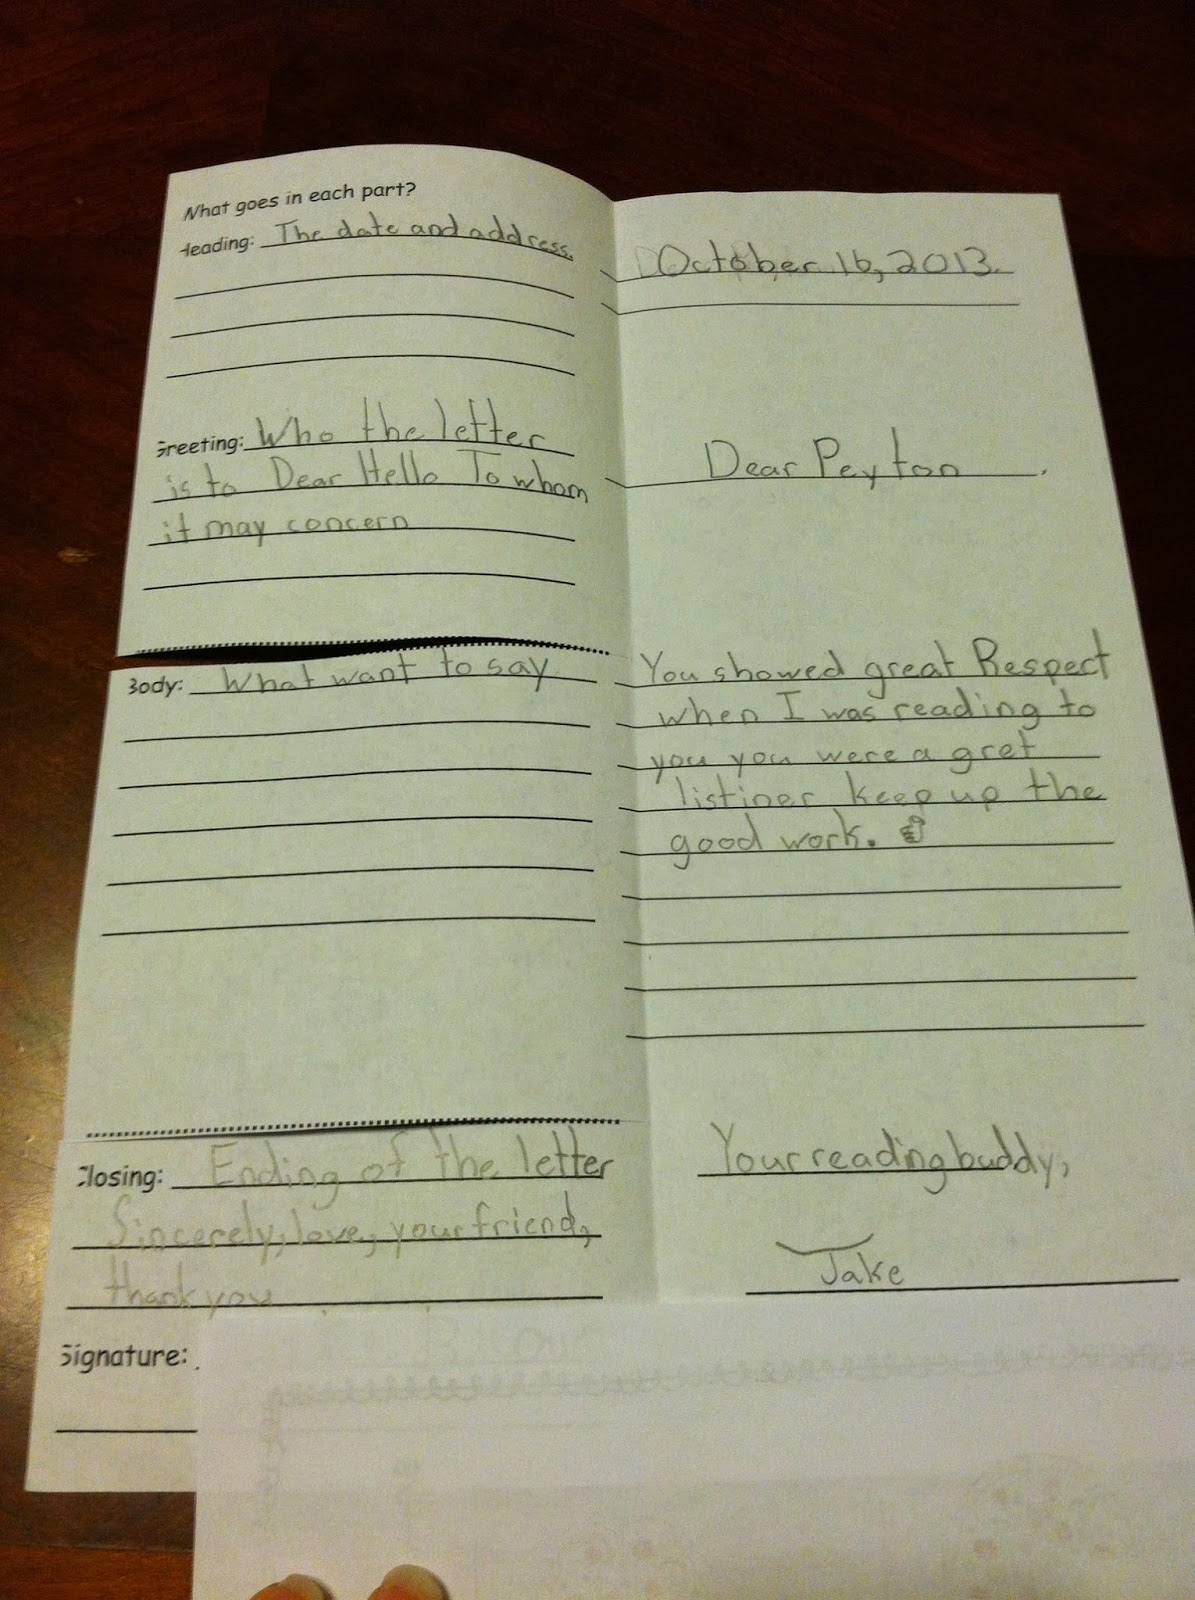 What goes in each part?
Heading: The date and address.
Greeting: Who the letter
is to Dear Hello To whom
it may concern
Body: What want to say
Closing: Ending of the letter
Sincerely, love, your friend,
thank you
Signature:
October 16, 2013.
Dear Peyton
You showed great Respect
when I was reading to
you you were a gret
listiner keep up the
good work.
Your reading buddy,
Jake